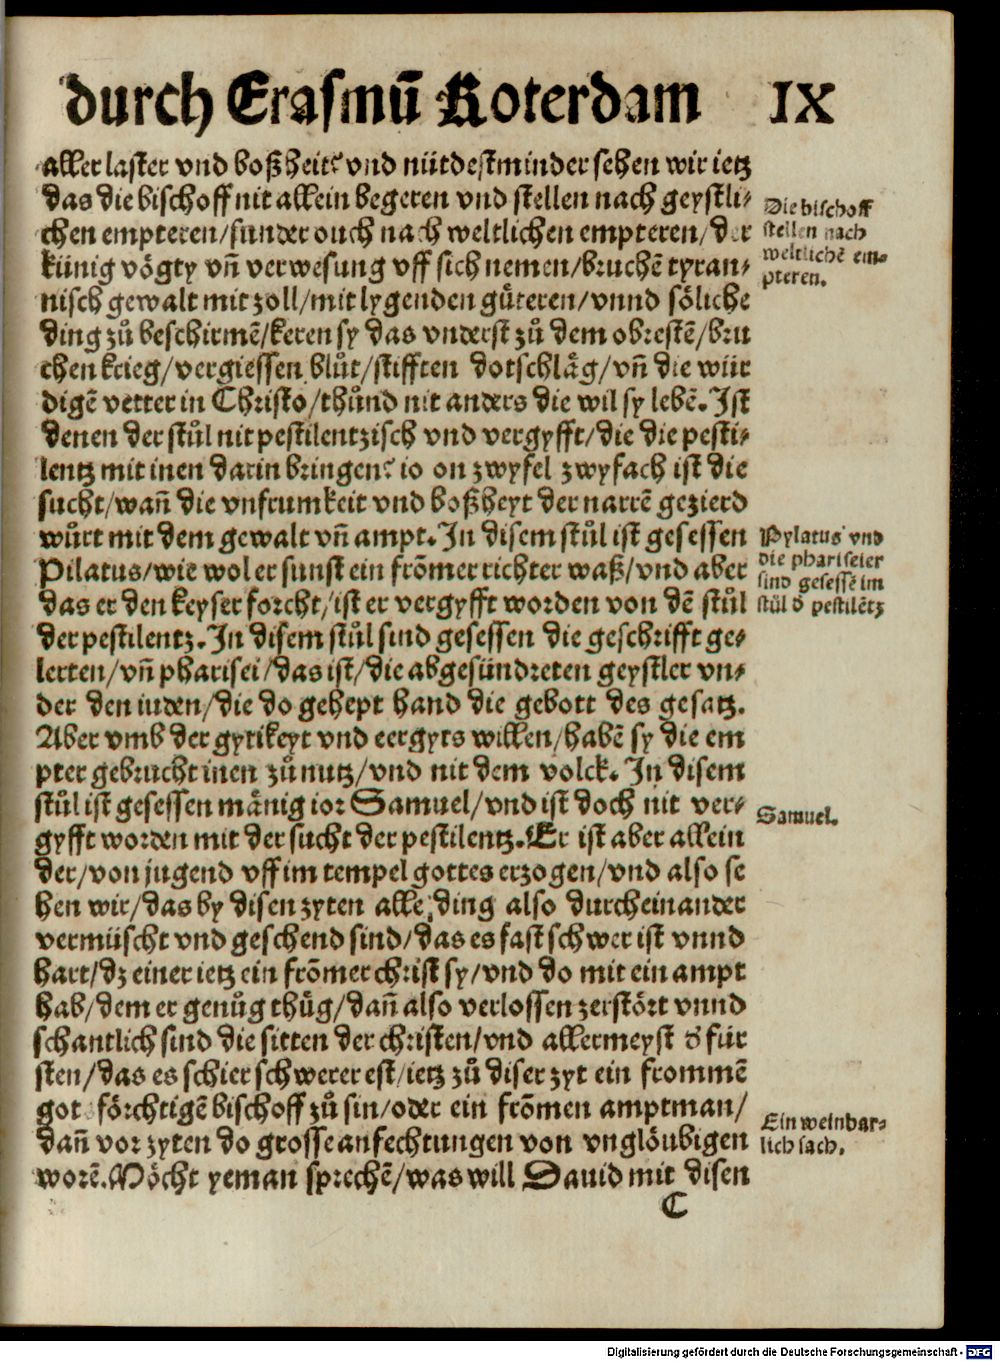 durch Erasmū Roterdam IX
aller laster vnd boßheit? vnd nüt destminder sehen wir ietz
das die bischoff nit allein begeren vnd stellen nach geystli-
chen empteren/sunder ouch nach weltlichen empteren/der
künig vögty vñ verwesung vff sich nemen/bruchē tyran-
nisch gewalt mit zoll/mit lygenden gůteren/vnnd söliche
ding zů beschirmē/keren sy das vnderst zů dem obrestē/bru
chen krieg/vergiessen blůt/stifften dotschläg/vñ die wür
digē vetter in Christo/thůnd nit anders die wil sy lebē. Ist
denen der stůl nit pestilentzisch vnd vergyfft/die die pesti-
lentz mit inen darin bringen? io on zwyfel zwyfach ist die
sucht/wañ die vnfrumkeit vnd boßheyt der narrē gezierd
würt mit dem gewalt vñ ampt. In disem stůl ist gesessen
Pilatus/wie wol er sunst ein frōmer richter waß/vnd aber
das er den keyser forcht/ist er vergyfft worden von dē stůl
der pestilentz. In disem stůl sind gesessen die geschrifft ge-
lerten/vñ pharisei/das ist/die abgesündreten geystler vn-
der den iuden/die do gehept hand die gebott des gesatz.
Aber vmb der gytikeyt vnd eergyts willen/habē sy die em
pter gebrucht inen zů nutz/vnd nit dem volck. In disem
stůl ist gesessen mänig ior Samuel/vnd ist doch nit ver-
gyfft worden mit der sucht der pestilentz. Er ist aber allein
der/von jugend vff im tempel gottes erzogen/vnd also se
hen wir/das by disen zyten alle ding also durcheinander
vermüscht vnd geschend sind/das es fast schwer ist vnnd
hart/dz einer ietz ein frōmer christ sy/vnd do mit ein ampt
hab/dem er genůg thüg/dañ also verlossen zerstört vnnd
schantlich sind die sitten der christen/vnd allermeyst d̄ für
sten/das es schier schwerer est/ietz zů diser zyt ein frommē
got förchtigē bischoff zů sin/oder ein frōmen amptman/
dañ vor zyten do grosse anfechtungen von vnglöubigen
worē. Möcht yeman sprechē/was will Dauid mit disen
C
Die bischoff
stellen nach
weltlichē em-
pteren.
Pylatus vnd
die phariseier
sind gesessē im
stůl d̄ pestilētz
Samuel.
Ein weinbar-
lich sach.
Digitalisierung gefördert durch die Deutsche Forschungsgemeinschaft - DFG